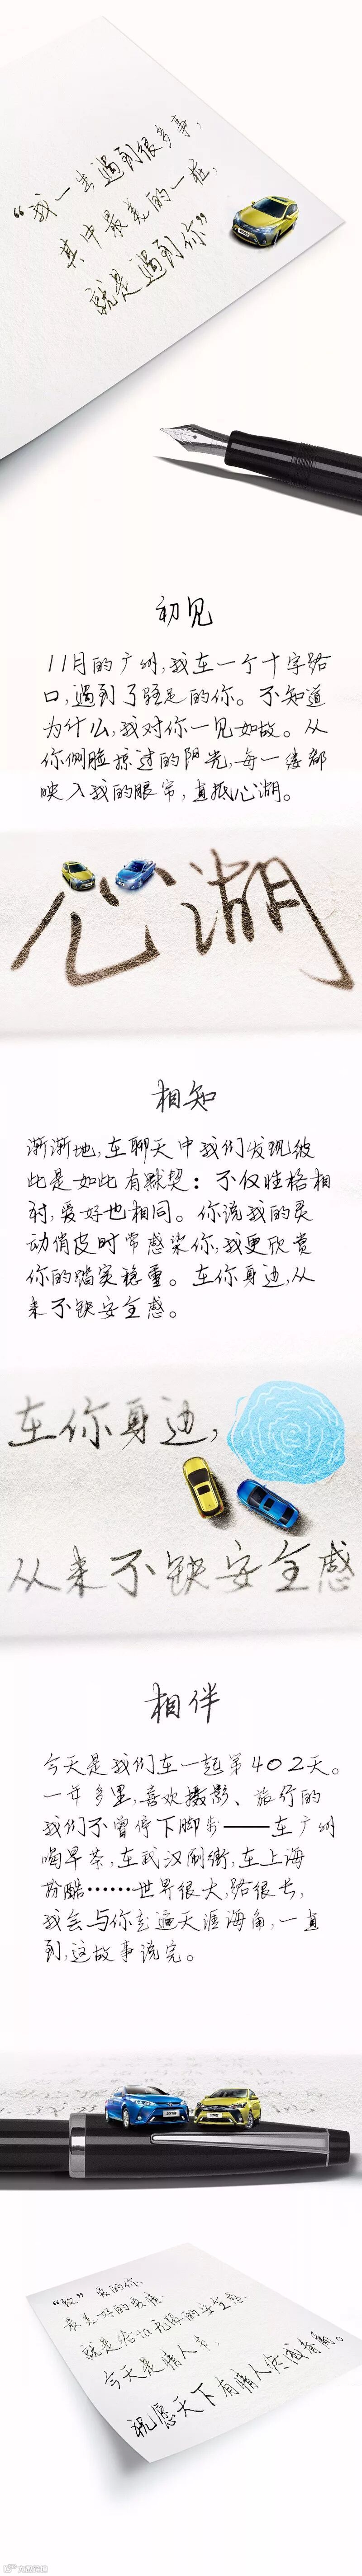 “我一生遇到很多事，
其中最美的一桩，
就是遇到你”
初见
11月的广州，我在一个十字路
口，遇到了驻足的你。不知道
为什么，我对你一见如故。从
你侧脸掠过的阳光，每一缕都
映入我的眼帘，直抵心湖。
心湖
相知
渐渐地，在聊天中我们发现彼
此是如此有默契：不仅性格相
衬，爱好也相同。你说我的灵
动俏皮时常感染你，我更欣赏
你的踏实稳重。在你身边，从
来不缺安全感。
在你身边，
从来不缺安全感
相伴
今天是我们在一起第402天。
一年多里，喜欢摄影、旅行的
我们不曾停下脚步——在广州
喝早茶，在武汉刷街，在上海
扮酷……世界很大，路很长，
我会与你走遍天涯海角，一直
到，这故事说完。
“致”爱的你
最美好的爱情，
就是给你无限的安全感，
今天是情人节，
祝愿天下有情人终成眷属。